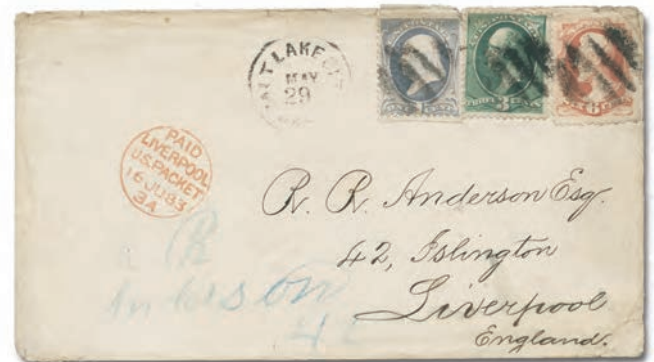 SALT LAKE CITY
MAY
29
3 CENTS
6
PAID
LIVERPOOL
U.S. PACKET
16 JU 83
3A
R. R. Anderson Esq.
42, Islington
Liverpool
England.
R
42